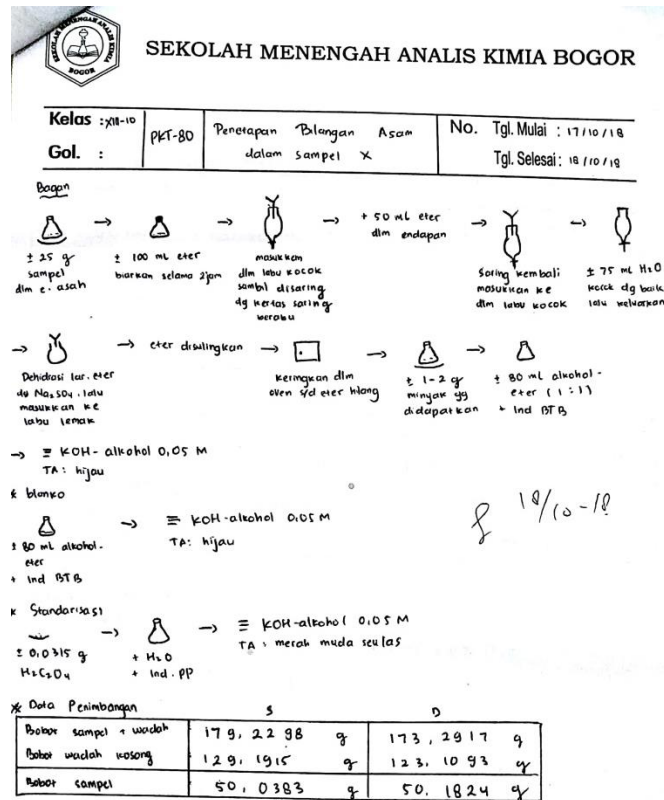 SEKOLAH MENENGAH ANALIS KIMIA
BOGOR
SEKOLAH MENENGAH ANALIS KIMIA BOGOR
Kelas : XIII-10
Gol. :
PKT-80
Penetapan Bilangan Asam
dalam sampel X
No. Tgl. Mulai : 17/10/18
Tgl. Selesai : 18/10/18
Bagan
± 25 g
sampel
dlm e. asah
± 100 mL eter
biarkan selama 2jam
masukkan
dlm labu kocok
sambil disaring
dg kertas saring
berabu
+ 50 ml eter
dlm endapan
Saring kembali
masukkan ke
dlm labu kocok
± 75 mL H2O
kocok dg baik
lalu keluarkan
Dehidrasi lar. eter
dg Na2SO4. lalu
masukkan ke
labu lemak
eter disulingkan
keringkan dlm
oven s/d eter hilang
± 1-2 g
minyak yg
didapatkan
+ 80 ml alkohol-
eter (1:1)
+ Ind BTB
≡ KOH-alkohol 0,05 M
TA : hijau
* blanko
± 80 mL alkohol-
eter
+ Ind BTB
≡ KOH-alkohol 0,05 M
TA: hijau
18/10-18
* Standarisasi
± 0,0315 g
H2C2O4
+ H2O
+ Ind. PP
≡ KOH-alkohol 0,05 M
TA : merah muda seulas
* Data Penimbangan
S D
Bobot sampel + wadah 179, 2298 g 173, 2917 g
Bobot wadah kosong 129, 1915 g 123, 1093 g
Bobot sampel 50, 0383 g 50, 1824 g